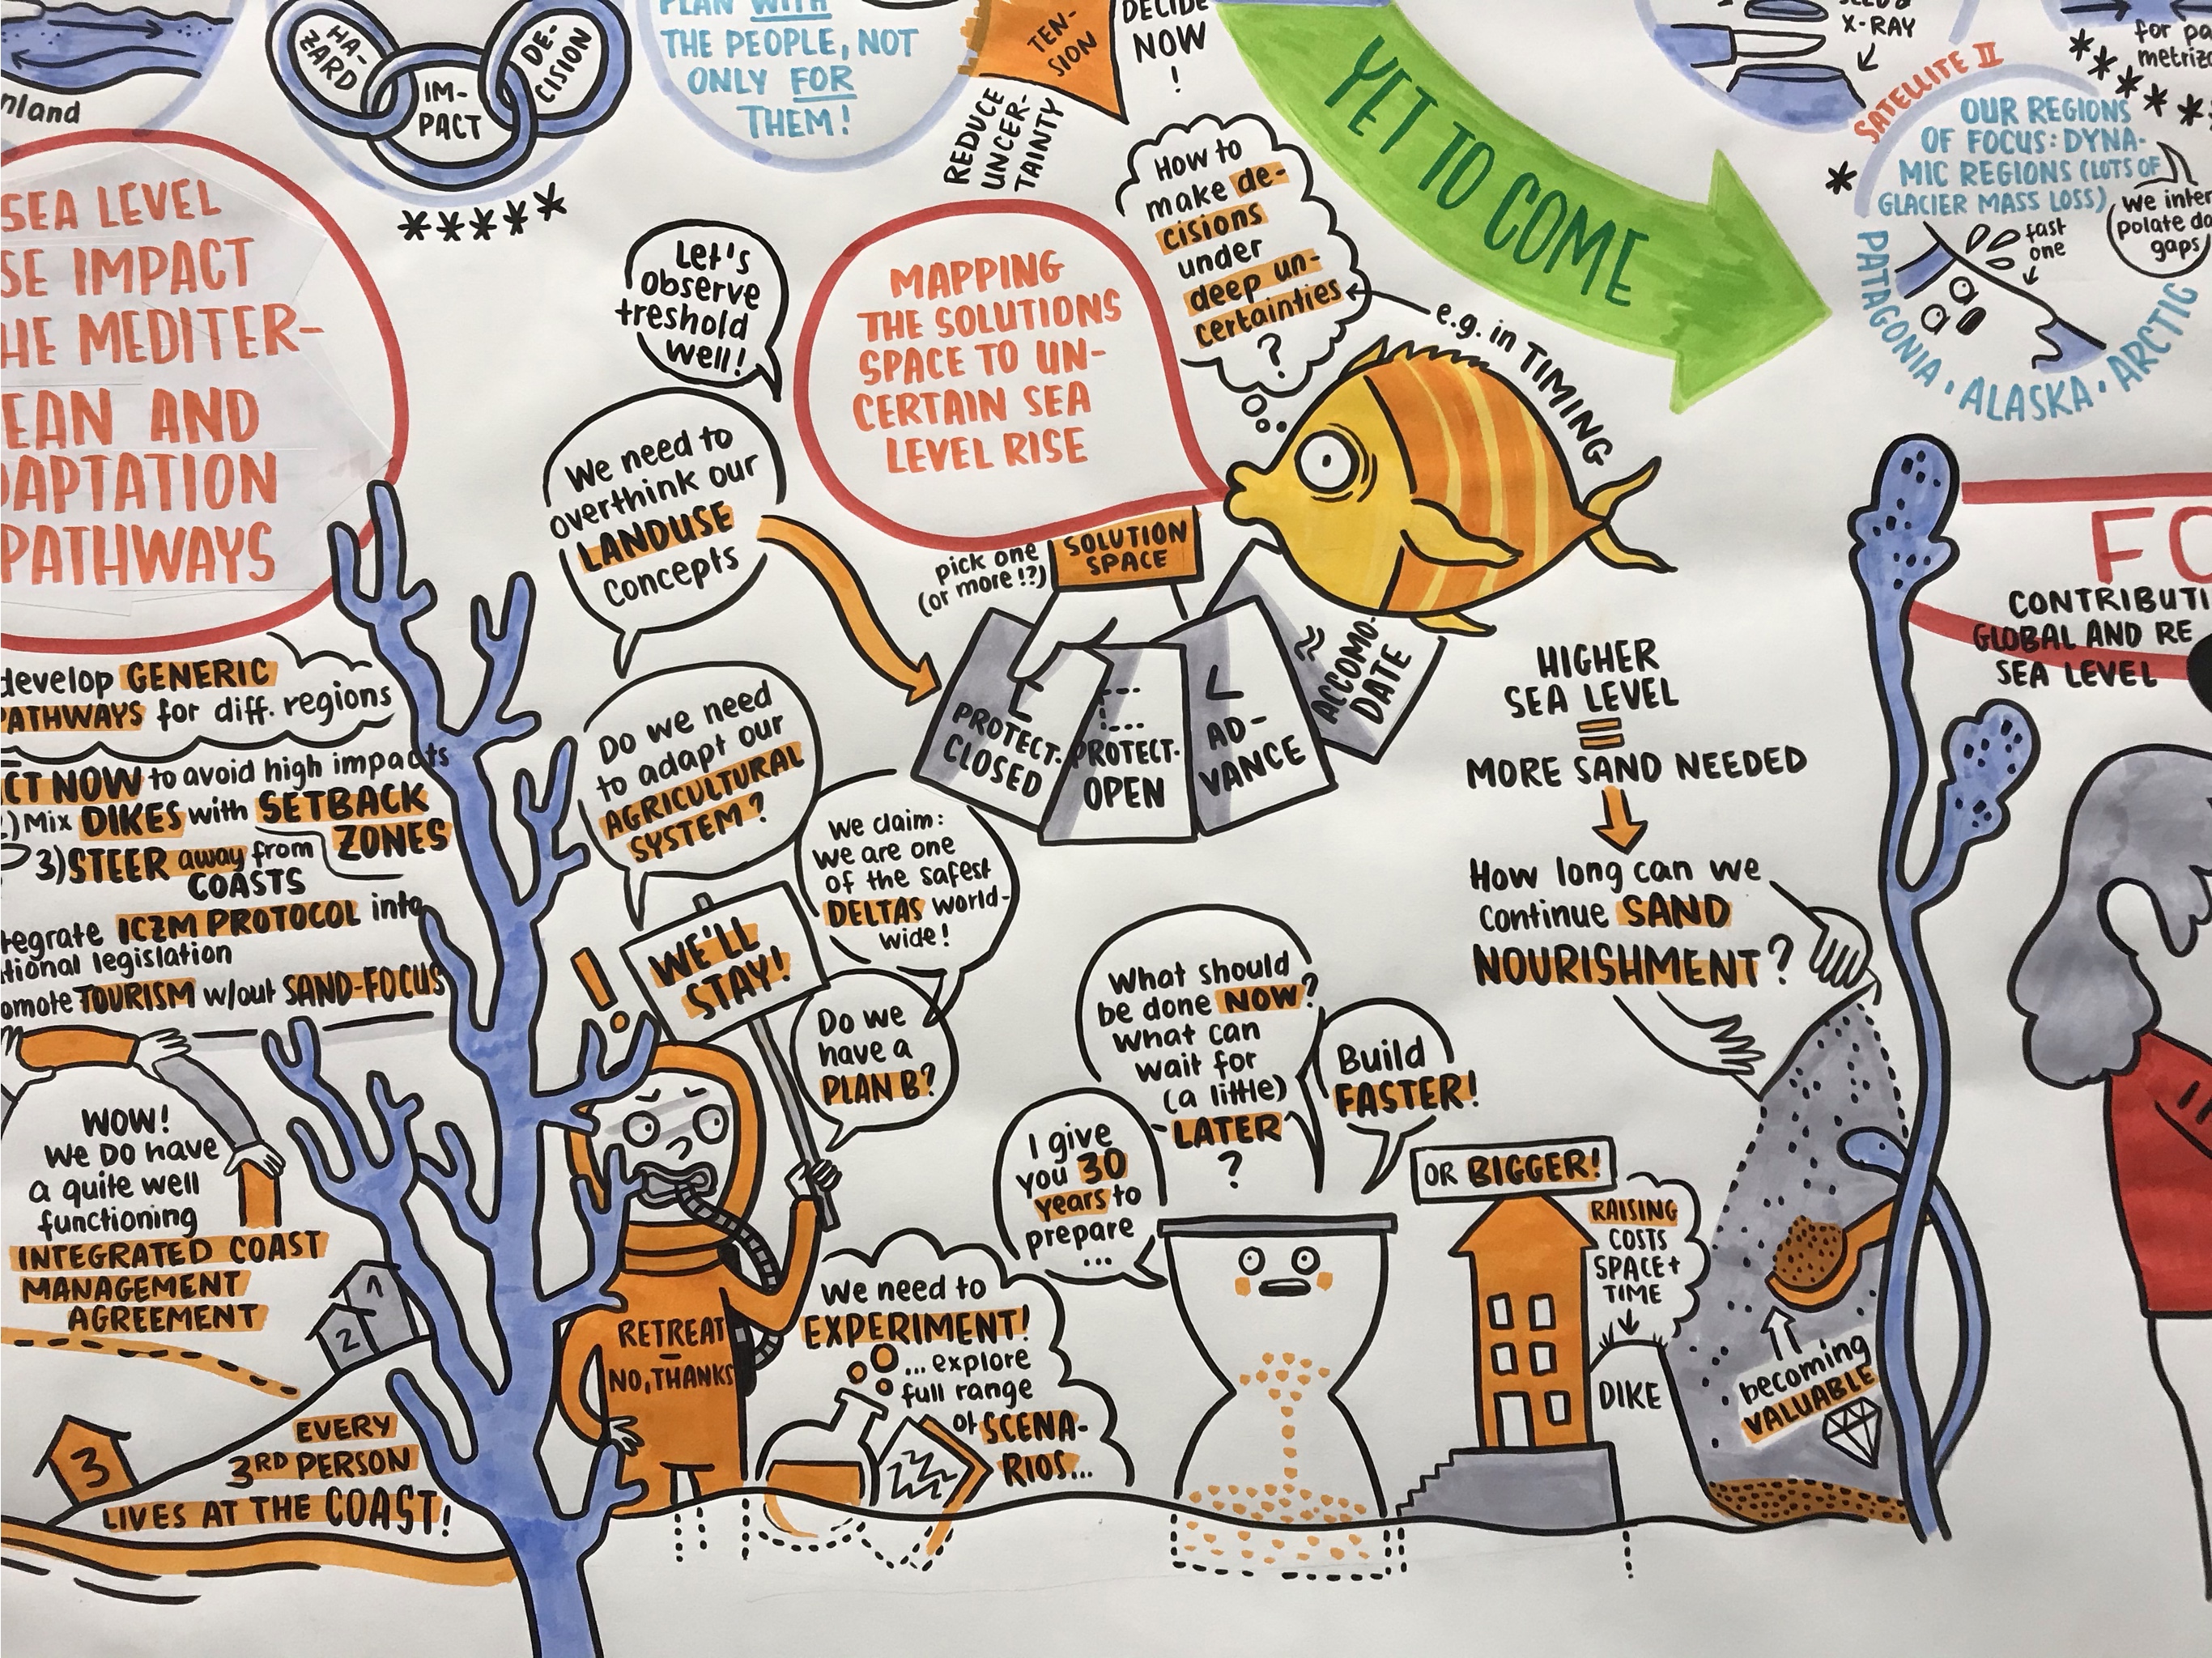 nland
HA-
ZARD
IM-
PACT
DE-
CISION
*****
PLAN WITH
THE PEOPLE, NOT
ONLY FOR
THEM!
TEN-
SION
DECIDE
NOW
!
REDUCE
UNCER-
TAINTY
YET TO COME
X-RAY
for pa
metriz
SATELLITE II
OUR REGIONS
OF FOCUS: DYNA-
MIC REGIONS (LOTS OF
GLACIER MASS LOSS)
we inter
polate da
gaps
fast
one
PATAGONIA · ALASKA · ARCTIC
SEA LEVEL
SE IMPACT
HE MEDITER-
EAN AND
DAPTATION
PATHWAYS
develop GENERIC
PATHWAYS for diff. regions
CT NOW to avoid high impacts
2) Mix DIKES with SETBACK
ZONES
3) STEER away from
COASTS
tegrate ICZM PROTOCOL into
tional legislation
omote TOURISM w/out SAND-FOCUS
WOW!
We DO have
a quite well
functioning
INTEGRATED COAST
MANAGEMENT
AGREEMENT
1
2
3
EVERY
3RD PERSON
LIVES AT THE COAST!
Let's
observe
treshold
well!
We need to
overthink our
LANDUSE
concepts
Do we need
to adapt our
AGRICULTURAL
SYSTEM?
MAPPING
THE SOLUTIONS
SPACE TO UN-
CERTAIN SEA
LEVEL RISE
How to
make de-
cisions
under
deep un-
certainties
?
e.g. in TIMING
pick one
(or more!?)
SOLUTION
SPACE
PROTECT-
CLOSED
PROTECT-
OPEN
AD-
VANCE
ACCOMO-
DATE
We claim:
we are one
of the safest
DELTAS world-
wide!
WE'LL
STAY!
!
Do we
have a
PLAN B?
RETREAT
—
NO, THANKS
We need to
EXPERIMENT!
...explore
full range
of SCENA-
RIOS...
What should
be done NOW?
What can
wait for
(a little)
LATER
?
I give
you 30
years to
prepare
...
Build
FASTER!
OR BIGGER!
RAISING
COSTS
SPACE+
TIME
DIKE
HIGHER
SEA LEVEL
=
MORE SAND NEEDED
How long can we
continue SAND
NOURISHMENT?
becoming
VALUABLE
FO
CONTRIBUTI
GLOBAL AND RE
SEA LEVEL